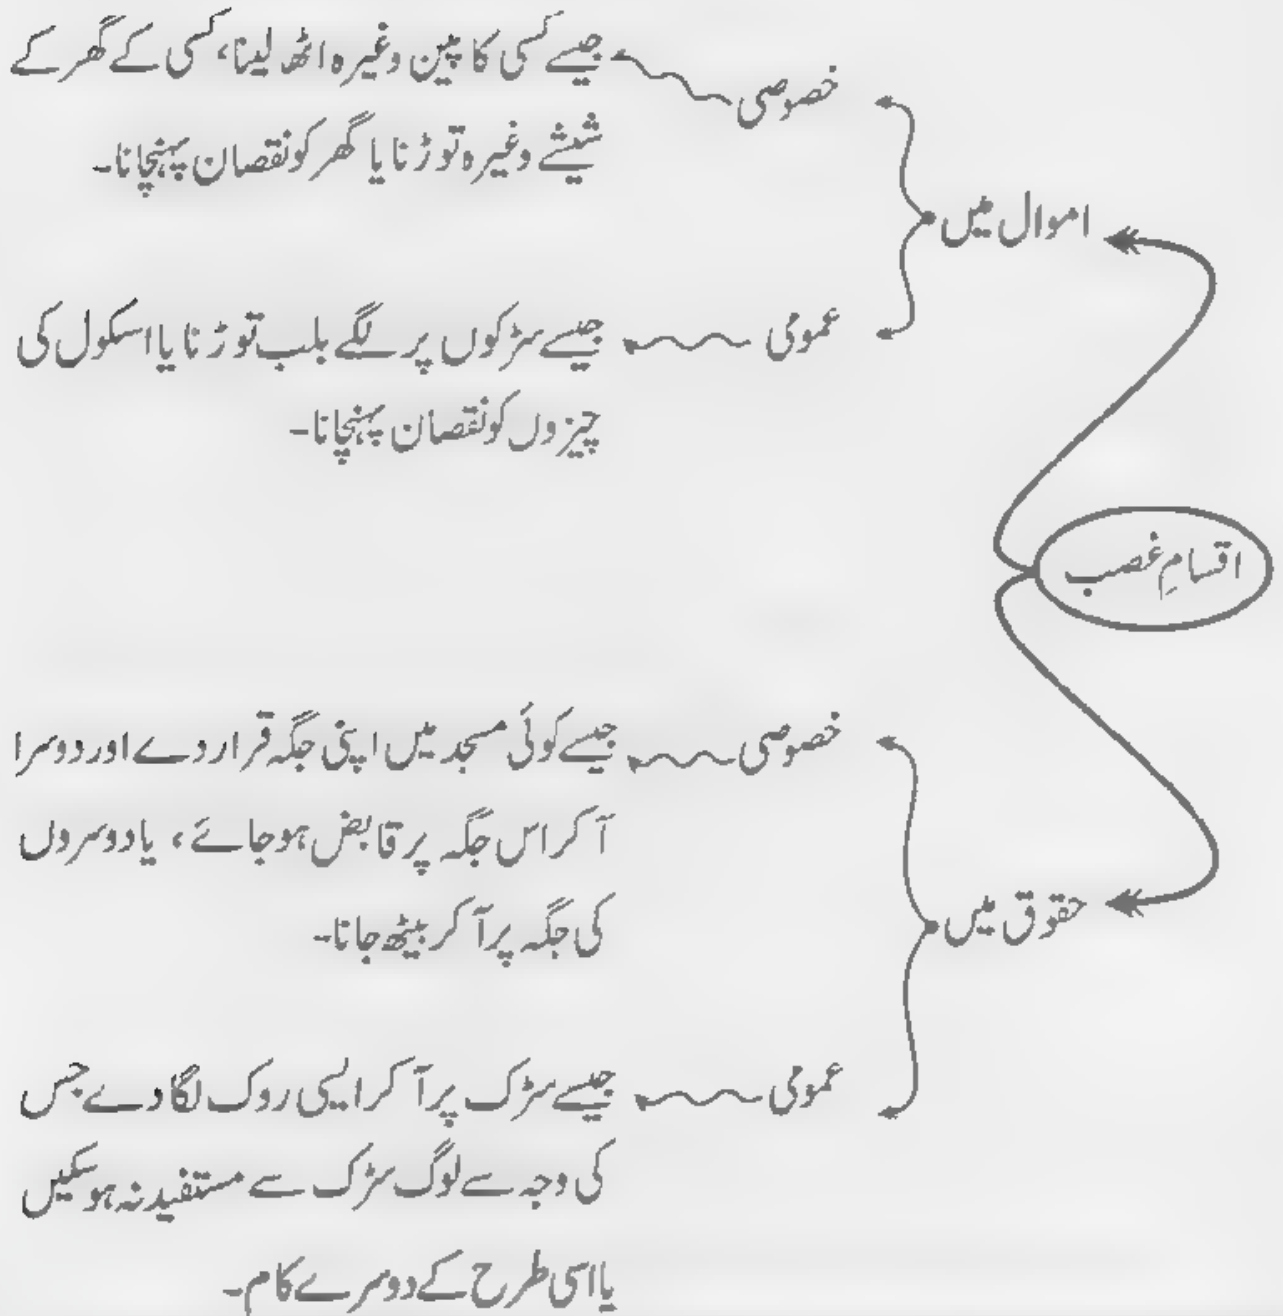 اقسامِ غصب
اموال میں
خصوصی
جیسے کسی کا پین وغیرہ اٹھا لینا، کسی کے گھر کے
شیشے وغیرہ توڑنا یا گھر کو نقصان پہنچانا۔
عمومی
جیسے سڑکوں پر لگے بلب توڑنا یا اسکول کی
چیزوں کو نقصان پہنچانا۔
حقوق میں
خصوصی
جیسے کوئی مسجد میں اپنی جگہ قرار دے اور دوسرا
آ کر اس جگہ پر قابض ہو جائے، یا دوسروں
کی جگہ پر آ کر بیٹھ جانا۔
عمومی
جیسے سڑک پر آ کر ایسی روک لگا دے جس
کی وجہ سے لوگ سڑک سے مستفید نہ ہو سکیں
یا اسی طرح کے دوسرے کام۔